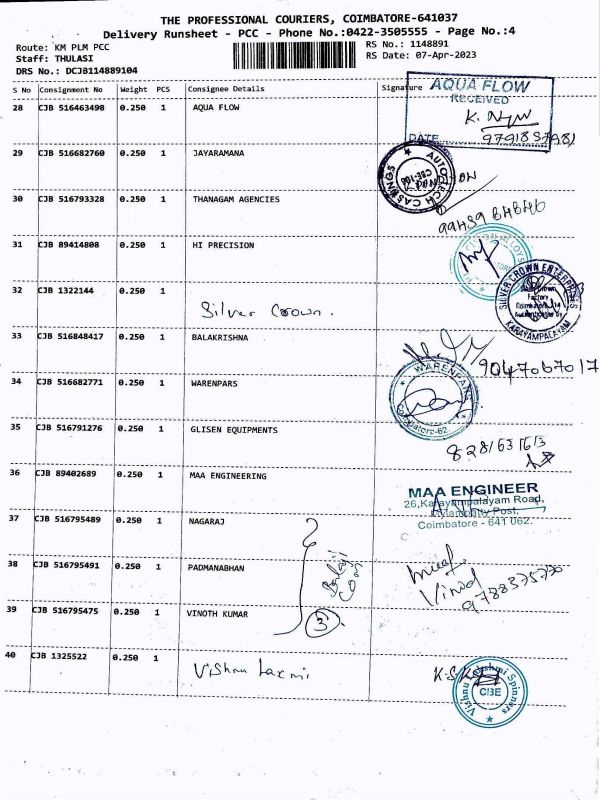 THE PROFESSIONAL COURIERS, COIMBATORE-641037
Delivery Runsheet - PCC - Phone No.:0422-3505555 - Page No.:4
Route: KM PLM PCC
RS No.: 1148891
Staff: THULASI
RS Date: 07-Apr-2023
DRS No.: DCJB114889104
S No Consignment No Weight PCS Consignee Details Signature
28 CJB 516463498 0.250 1 AQUA FLOW
AQUA FLOW
RECEIVED
DATE
9791837981
29 CJB 516682760 0.250 1 JAYARAMANA
AUTOTECH CASTINGS
30 CJB 516793328 0.250 1 THANAGAM AGENCIES
31 CJB 89414808 0.250 1 HI PRECISION
32 CJB 1322144 0.250 1
Silver Crown.
SILVER CROWN ENTERPRISES
KARAYAMPALAYAM
33 CJB 516848417 0.250 1 BALAKRISHNA
9047067017
34 CJB 516682771 0.250 1 WARENPARS
WARENPARS
Coimbatore-62.
35 CJB 516791276 0.250 1 GLISEN EQUIPMENTS
8281631613
36 CJB 89402689 0.250 1 MAA ENGINEERING
MAA ENGINEER
26,Karayampalayam Road,
Mylampatty Post,
Coimbatore - 641 062.
37 CJB 516795489 0.250 1 NAGARAJ
38 CJB 516795491 0.250 1 PADMANABHAN
39 CJB 516795475 0.250 1 VINOTH KUMAR
3
40 CJB 1325522 0.250 1
Vishnu Laxmi
Vishnu Lakshmi Spinners
CBE